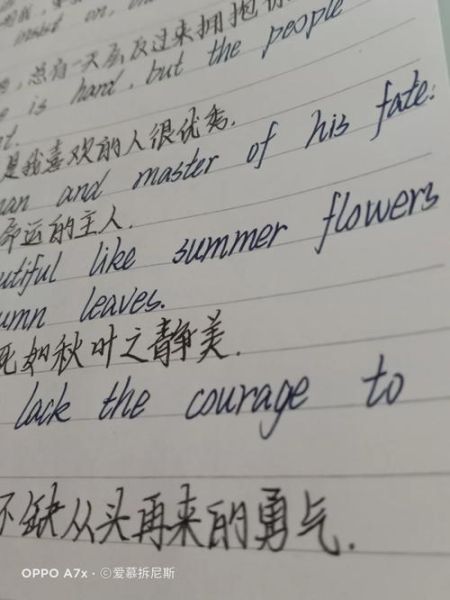 insist on,
总有一天会反过来拥抱你
is hard, but the people
是我喜欢的人很优秀.
man and master of his fate.
命运的主人.
utiful like summer flowers
umn leaves.
死如秋叶之静美.
lack the courage to
不缺从头再来的勇气.
OPPO A7x · ©爱慕拆尼斯